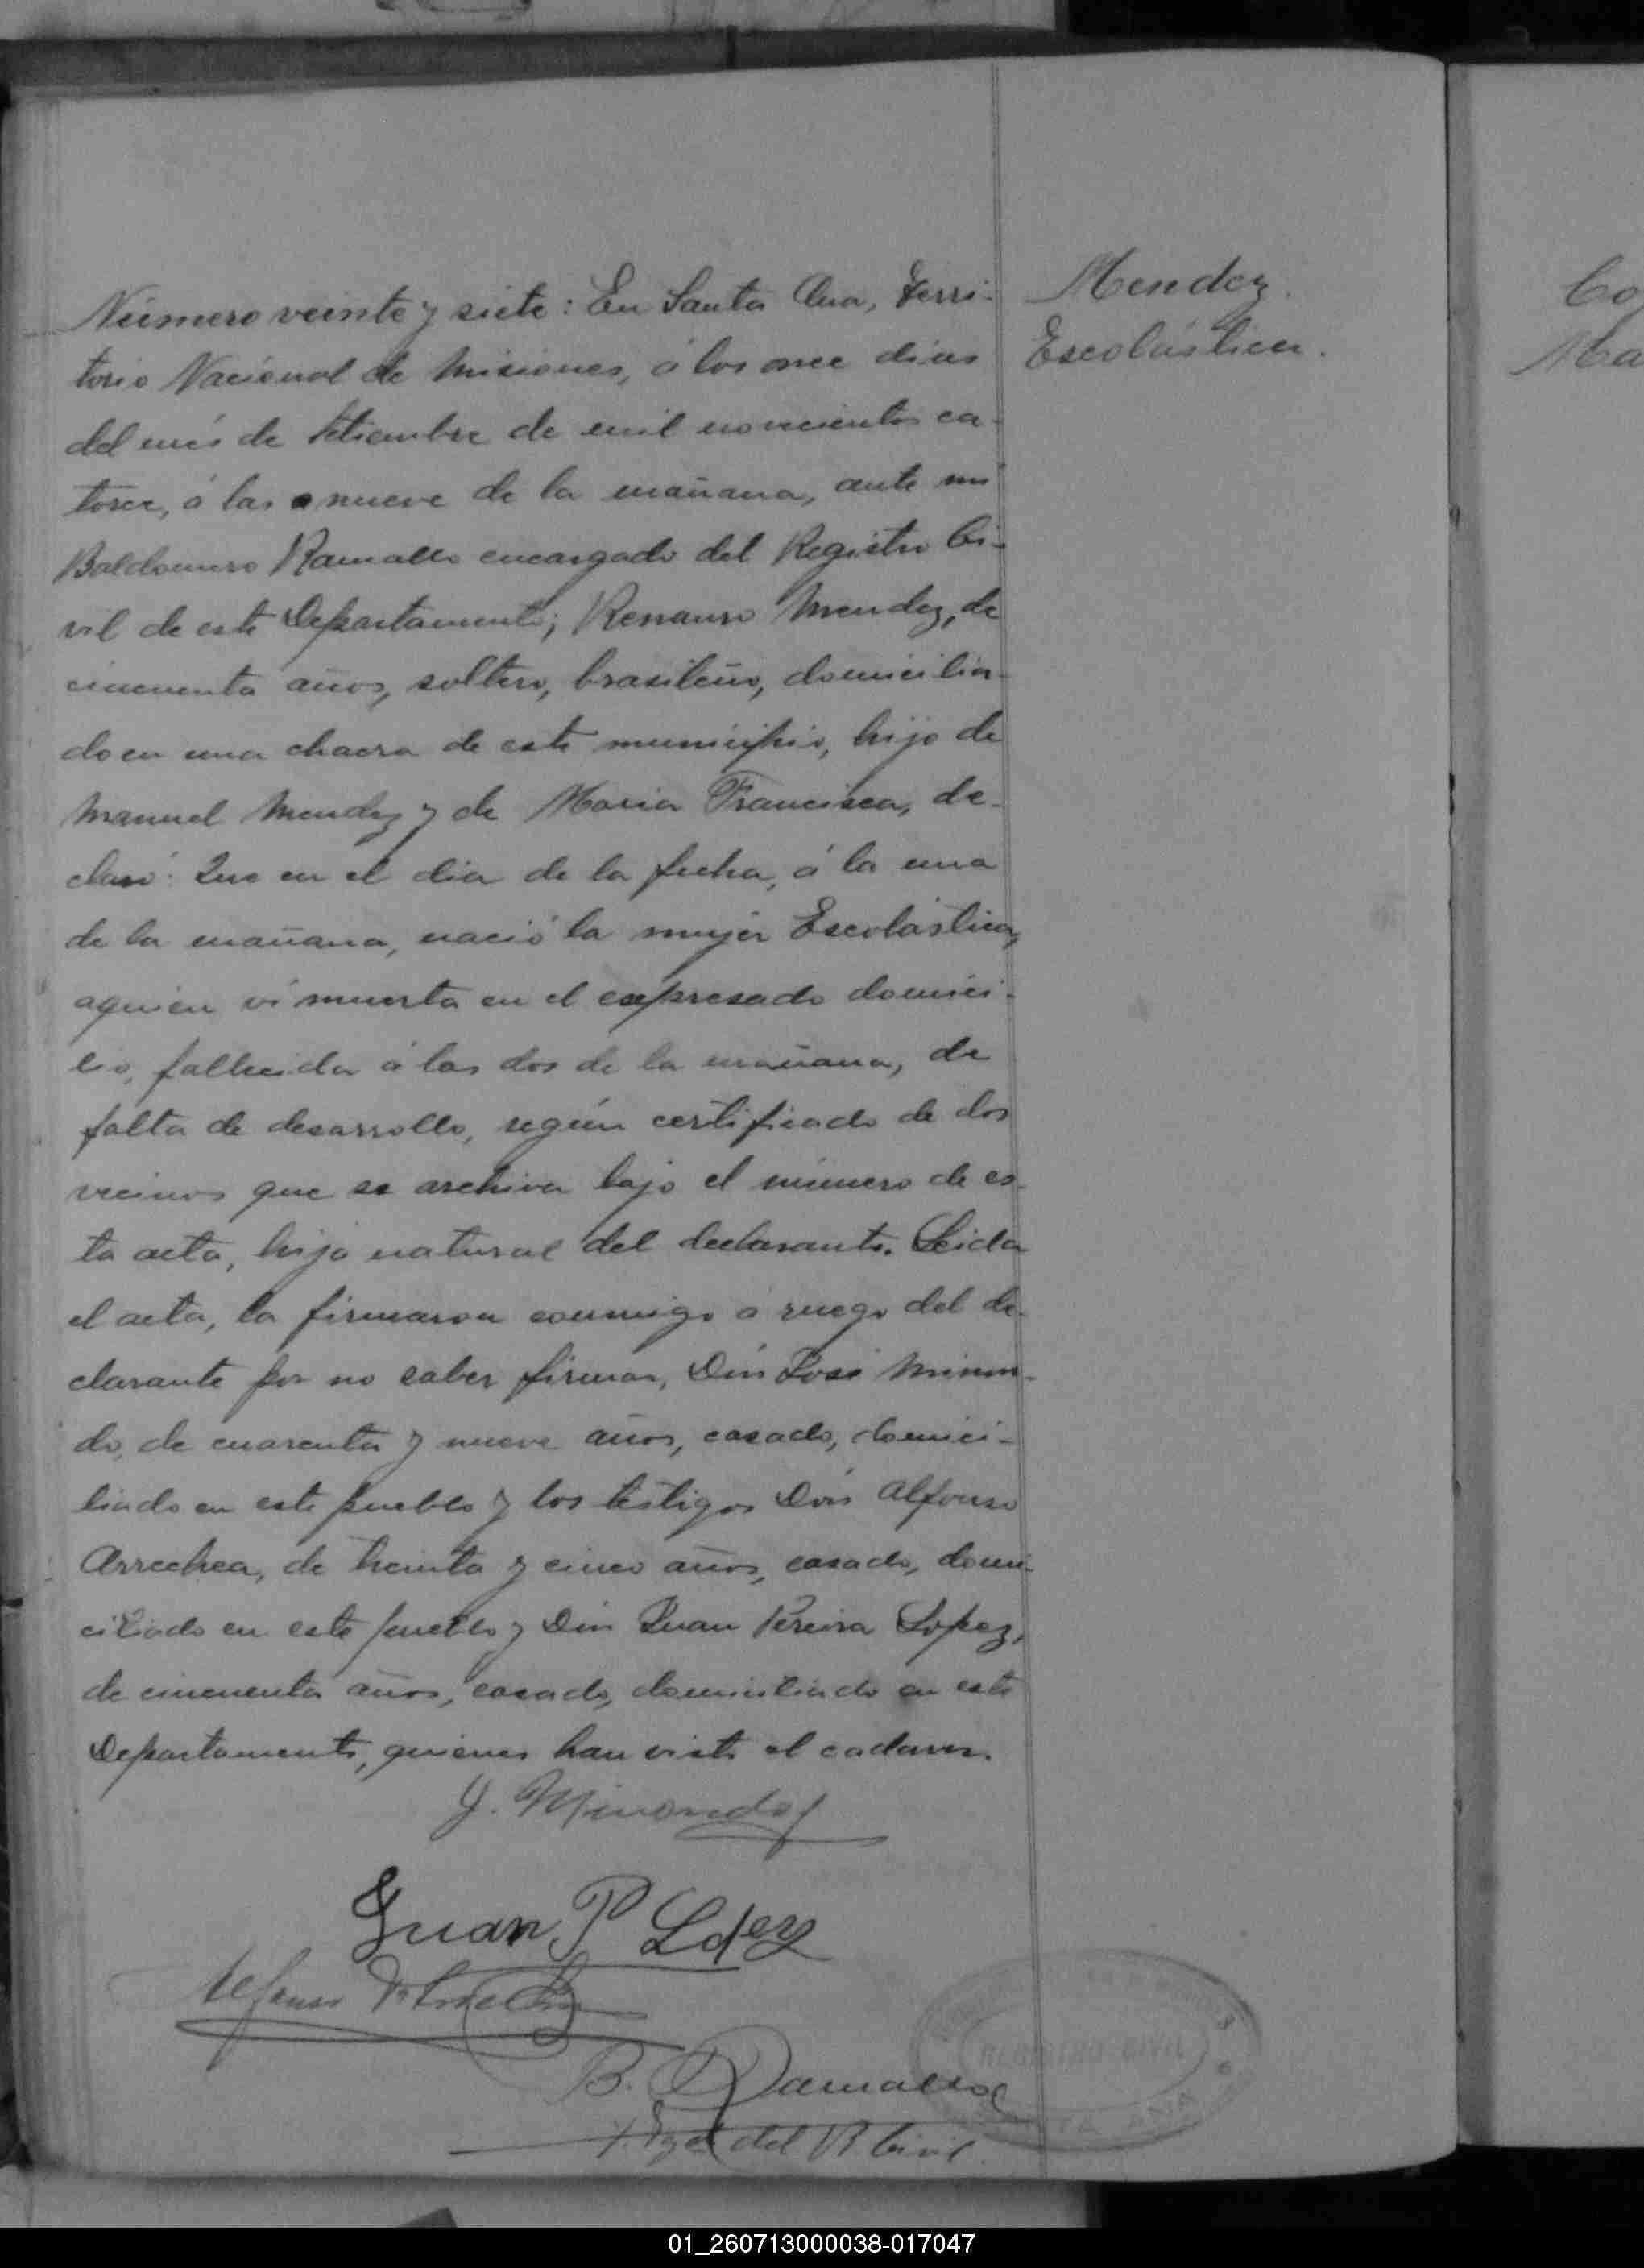 Mendez
Escolástica.
Número veinte y siete: En Santa Ana, Terri-
torio Nacional de Misiones, á los once dias
del més de Setiembre de mil novecientos ca-
torce, á las nueve de la mañana, ante mi
Baldomero Ramallo encargado del Registro Ci-
vil de este Departamento; Mendez, de
cincuenta años, soltero, brasileño, domicilia-
do en una chacra de este municipio, hijo de
Manuel Mendez y de Maria Francisca, de-
claró: Que en el dia de la fecha, á la una
de la mañana, nació la mujer Escolástica,
aquien ví muerta en el expresado domici-
lio, fallecida á las dos de la mañana, de
falta de desarrollo, según certificado de dos
vecinos que se archiva bajo el número de es-
ta acta, hija natural del declarante. Leida
el acta, la firmaron conmigo á ruego del de-
clarante por no saber firmar, Dón José Minon-
do, de cuarenta y nueve años, casado, domici-
liado en este pueblo y los testigos Dón Alfonso
Arrechea, de treinta y cinco años, casado, domi-
ciliado en este pueblo y Dón Juan Pereira Lopez,
de cincuenta años, casado, domiciliado en este
Departamento, quienes han visto el cadaver.
J. Minondo
Juan P Lopez
Alfonso Arrechea
B. Ramallo
del R. Civil.
REGISTRO CIVIL
SANTA ANA
Co
Ma
01_260713000038-017047